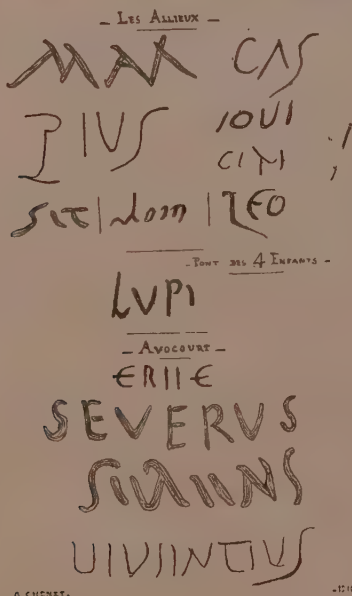 _ LES ALLIEUX _
MAR CAS
PIUS IOUI
CIM
SIT | dom | LEO
_ PONT DES 4 ENFANTS _
LVPI
_ AVOCOURT _
ERIIE
SEVERUS
UIVIINTIUS
G. CHENET.